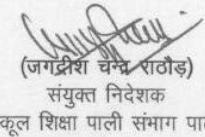 (जगदीश चन्द्र राठौड़)
संयुक्त निदेशक
कूल शिक्षा पाली संभाग पा